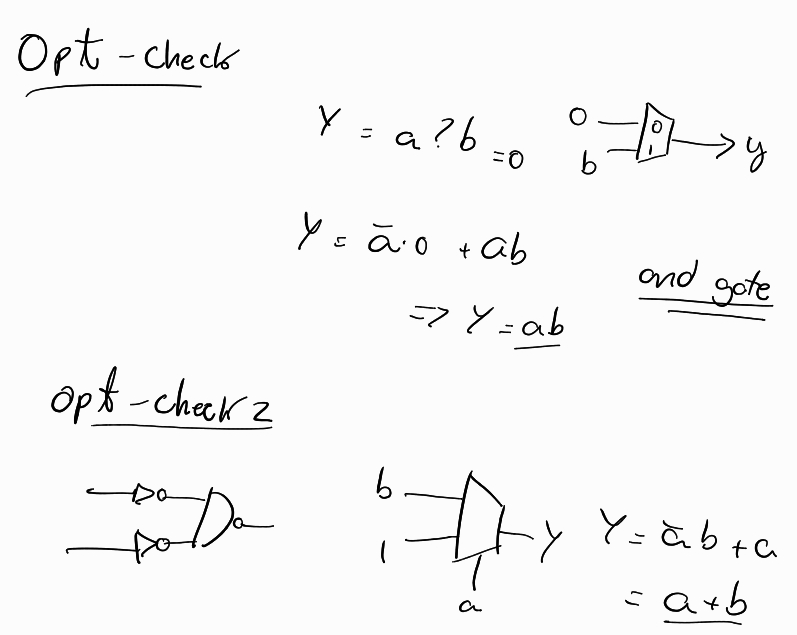 Opt-check
Y = a ? b = 0
0
b
0
1
y
Y = ā·0 + ab
and gate
=> Y = ab
opt-check 2
b
1
a
Y
Y = āb + a
= a+b